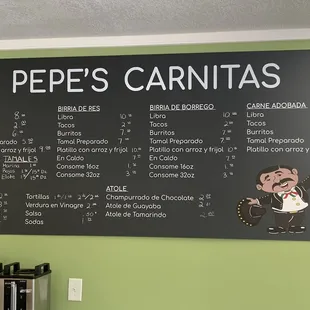 PEPE'S CARNITAS
8
2
6
arado 5
arroz y frijol 9
TAMALES
BIRRIA DE RES
Libro 10
Tacos 2
Burritos 7
Tamal Preparado
Platillo con arroz y frijol 10
En Caldo 7
Consome 16oz 1
Consome 32oz 3
BIRRIA DE BORREGO
Libra 10
Tacos 2
Burritos 7
Tamal Preparado
Platillo con arroz y frijol 10
En Caldo 7
Consome 16oz
Consome 32oz 3
CARNE ADOBADA
Libra
Tacos
Burritos
Tamal Preparado
Platillo con arroz
Tortillas
Verdura en Vinagre 2
Salsa
Sodas
ATOLE
Champurrado de Chocolate 2
Atole de Guayaba 2
Atole de Tamarindo 2